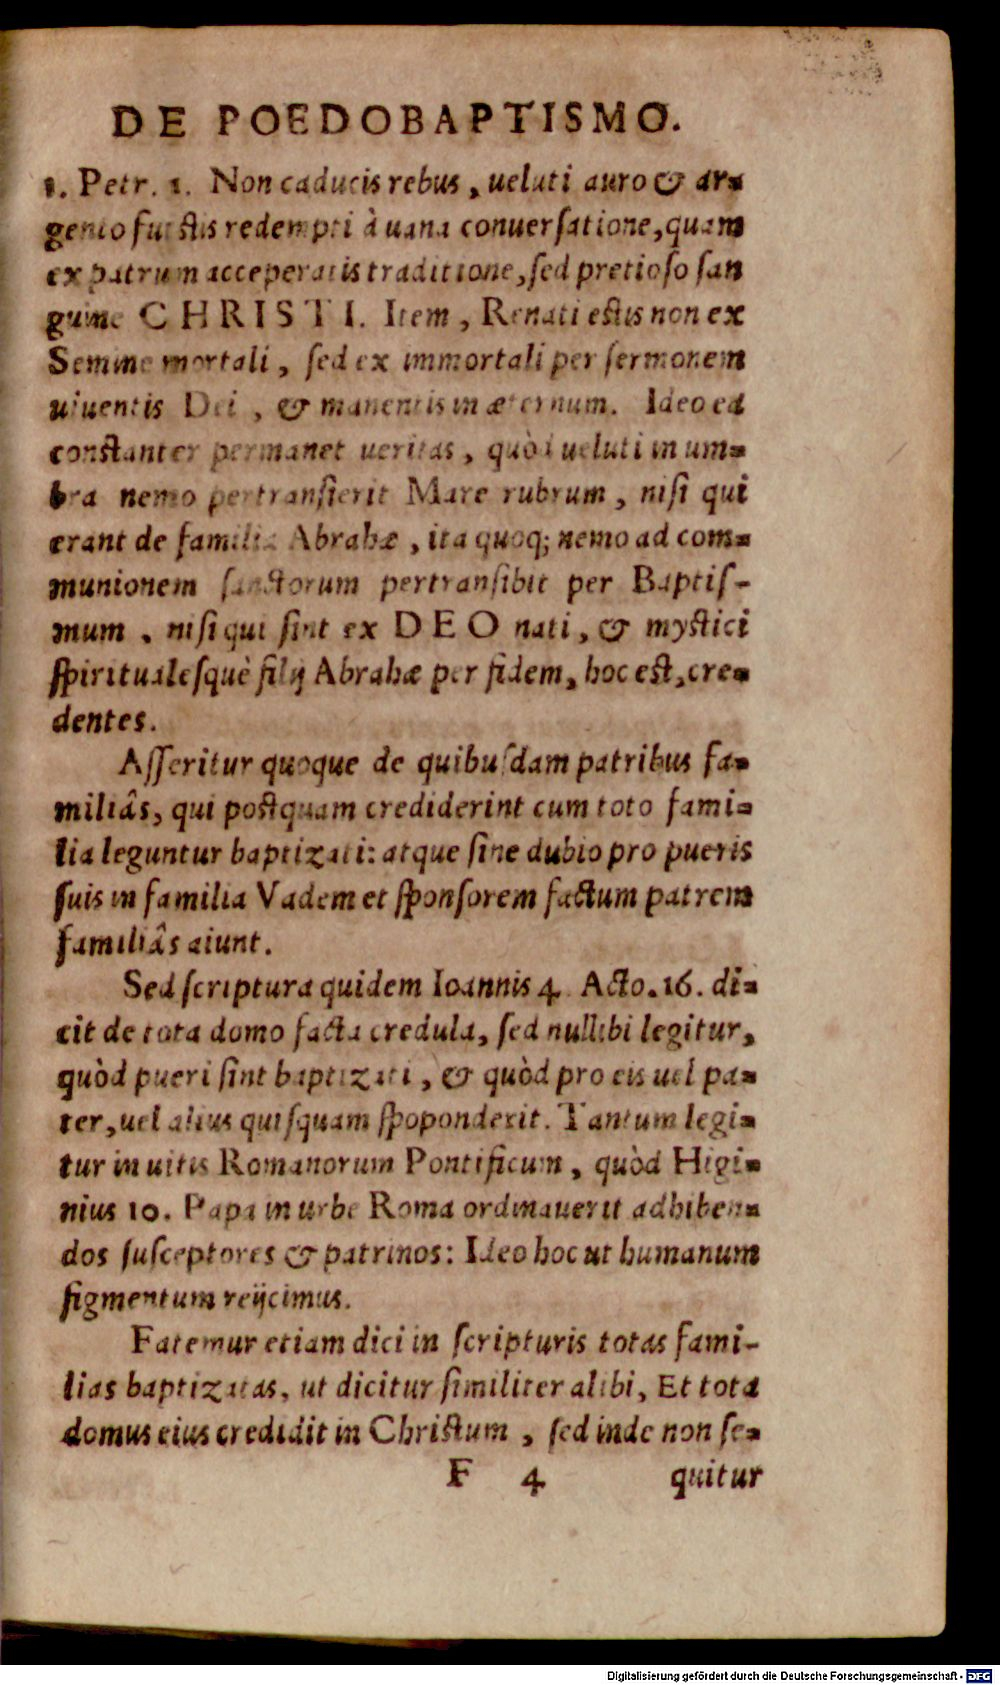 DE POEDOBAPTISMO.
1. Petr. 1. Non caducis rebus, ueluti auro & ar=
gento fuistis redempti à uana conuersatione, quam
ex patrum acceperatis traditione, sed pretioso san
guine CHRISTI. Item, Renati estis non ex
Semine mortali, sed ex immortali per sermonem
uiuentis Dei, & manentis in æternum. Ideo ea
constanter permanet ueritas, quòd ueluti in um=
bra nemo pertransierit Mare rubrum, nisi qui
erant de familia Abrahæ, ita quoq; nemo ad com=
munionem sanctorum pertransibit per Baptis-
mum, nisi qui sint ex DEO nati, & mystici
spiritualesquè filij Abrahæ per fidem, hoc est, cre=
dentes.
Asseritur quoque de quibusdam patribus fa=
miliâs, qui postquam crediderint cum toto fami=
lia leguntur baptizati: atque sine dubio pro pueris
suis in familia Vadem et sponsorem factum patrem
familiâs aiunt.
Sed scriptura quidem Ioannis 4. Acto. 16. di=
cit de tota domo facta credula, sed nullibi legitur,
quòd pueri sint baptizati, & quòd pro eis uel pa=
ter, uel alius quisquam spoponderit. Tantum legi=
tur in uitis Romanorum Pontificum, quòd Higi=
nius 10. Papa in urbe Roma ordinauerit adhiben=
dos susceptores & patrinos: Ideo hoc ut humanum
figmentum reijcimus.
Fatemur etiam dici in scripturis totas fami-
lias baptizatas, ut dicitur similiter alibi, Et tota
domus eius credidit in Christum, sed inde non se=
F 4 quitur
Digitalisierung gefördert durch die Deutsche Forschungsgemeinschaft - DFG